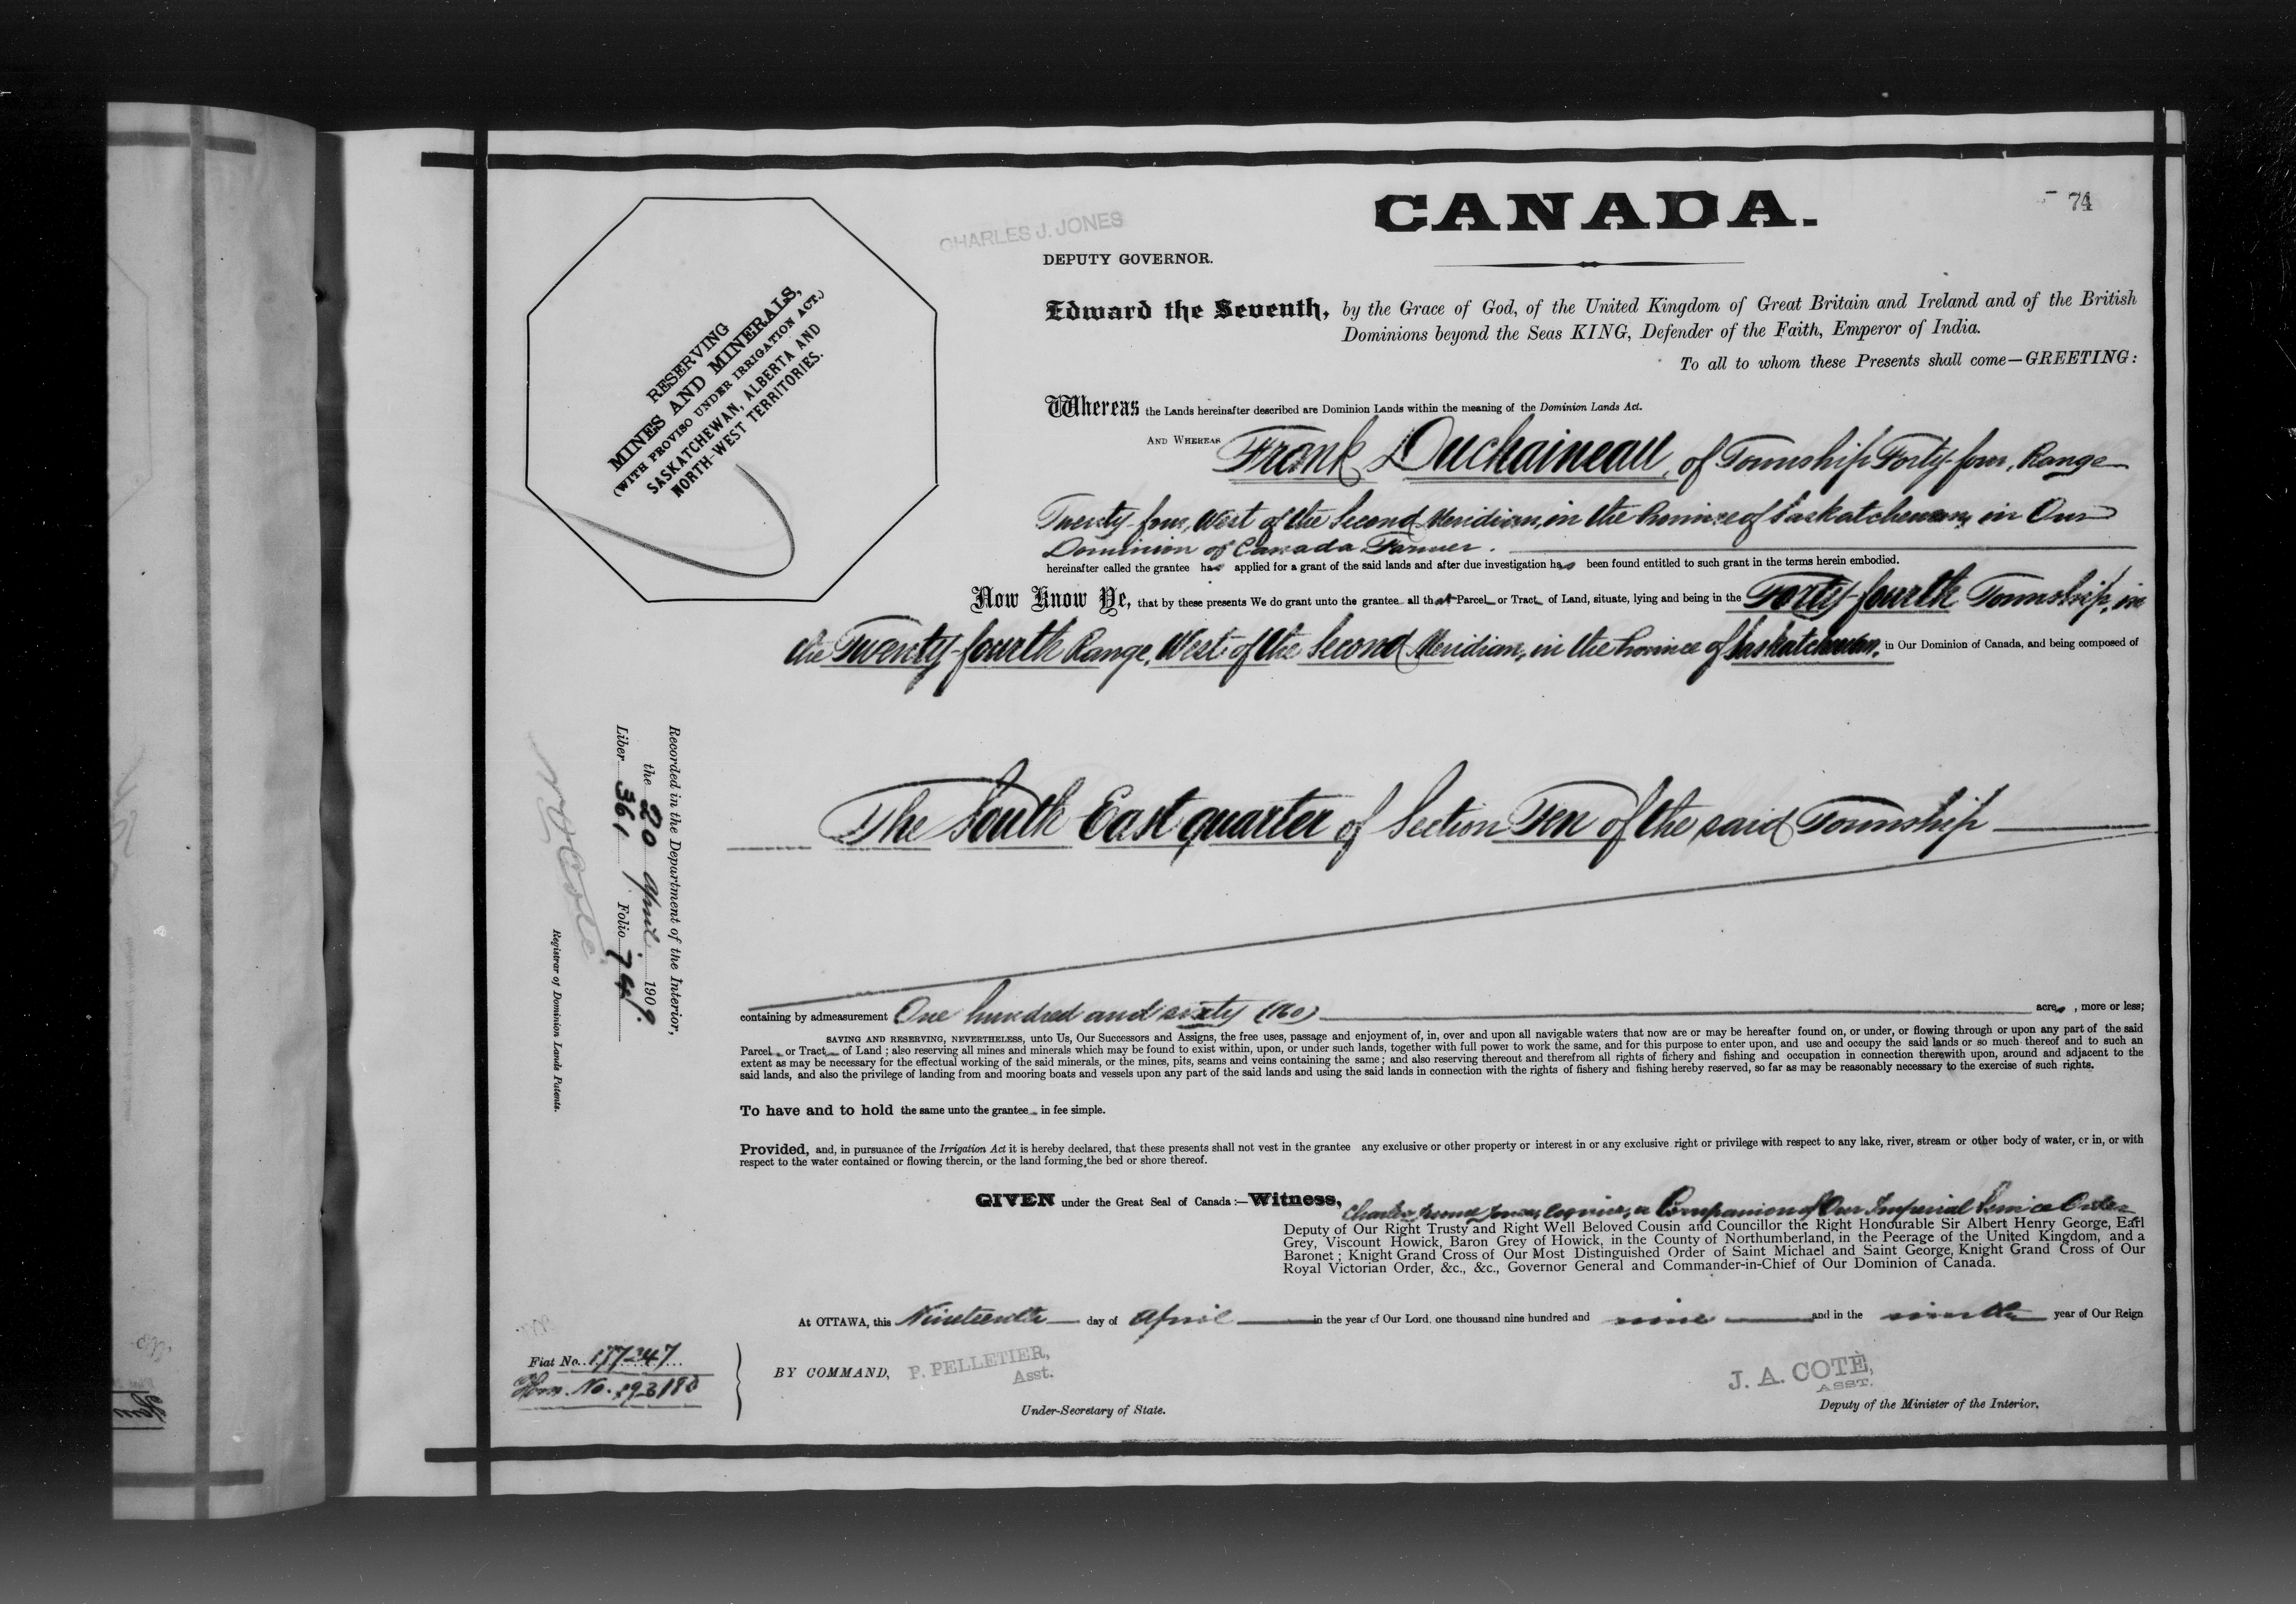 CANADA.
74
CHARLES J. JONES
DEPUTY GOVERNOR.
RESERVING
MINES AND MINERALS,
(WITH PROVISO UNDER IRRIGATION ACT.)
SASKATCHEWAN, ALBERTA AND
NORTH-WEST TERRITORIES.
Edward the Seventh, by the Grace of God, of the United Kingdom of Great Britain and Ireland and of the British
Dominions beyond the Seas KING, Defender of the Faith, Emperor of India.
To all to whom these Presents shall come—GREETING:
Whereas the Lands hereinafter described are Dominion Lands within the meaning of the Dominion Lands Act.
AND WHEREAS Frank Duchaineau, of Township Forty-four, Range
Twenty-four, West of the Second Meridian, in the Province of Saskatchewan, in Our
Dominion of Canada Farmer.
hereinafter called the grantee has applied for a grant of the said lands and after due investigation has been found entitled to such grant in the terms herein embodied.
Now Know Ye, that by these presents We do grant unto the grantee all that Parcel or Tract of Land, situate, lying and being in the Forty-fourth Township, in
the Twenty-fourth Range, West of the Second Meridian, in the Province of Saskatchewan, in Our Dominion of Canada, and being composed of
The South East quarter of Section Ten of the said Township
Recorded in the Department of the Interior,
the 20 April 1909.
Liber 361 Folio 74
Registrar of Dominion Lands Patents.
containing by admeasurement One hundred and sixty (160) acres, more or less;
SAVING AND RESERVING, NEVERTHELESS, unto Us, Our Successors and Assigns, the free uses, passage and enjoyment of, in, over and upon all navigable waters that now are or may be hereafter found on, or under, or flowing through or upon any part of the said
Parcel or Tract of Land; also reserving all mines and minerals which may be found to exist within, upon, or under such lands, together with full power to work the same, and for this purpose to enter upon, and use and occupy the said lands or so much thereof and to such an
extent as may be necessary for the effectual working of the said minerals, or the mines, pits, seams and veins containing the same; and also reserving thereout and therefrom all rights of fishery and fishing and occupation in connection therewith upon, around and adjacent to the
said lands, and also the privilege of landing from and mooring boats and vessels upon any part of the said lands and using the said lands in connection with the rights of fishery and fishing hereby reserved, so far as may be reasonably necessary to the exercise of such rights.
To have and to hold the same unto the grantee in fee simple.
Provided, and, in pursuance of the Irrigation Act it is hereby declared, that these presents shall not vest in the grantee any exclusive or other property or interest in or any exclusive right or privilege with respect to any lake, river, stream or other body of water, or in, or with
respect to the water contained or flowing therein, or the land forming the bed or shore thereof.
GIVEN under the Great Seal of Canada:—Witness, Charles Jones, Esquire, a Companion of Our Imperial Service Order
Deputy of Our Right Trusty and Right Well Beloved Cousin and Councillor the Right Honourable Sir Albert Henry George, Earl
Grey, Viscount Howick, Baron Grey of Howick, in the County of Northumberland, in the Peerage of the United Kingdom, and a
Baronet; Knight Grand Cross of Our Most Distinguished Order of Saint Michael and Saint George, Knight Grand Cross of Our
Royal Victorian Order, &c., &c., Governor General and Commander-in-Chief of Our Dominion of Canada.
At OTTAWA, this Nineteenth day of April in the year of Our Lord, one thousand nine hundred and nine and in the ninth year of Our Reign
Fiat No. 177247
Hom. No. 193180
BY COMMAND, P. PELLETIER,
Asst.
Under-Secretary of State.
J. A. COTÉ,
ASST.
Deputy of the Minister of the Interior.